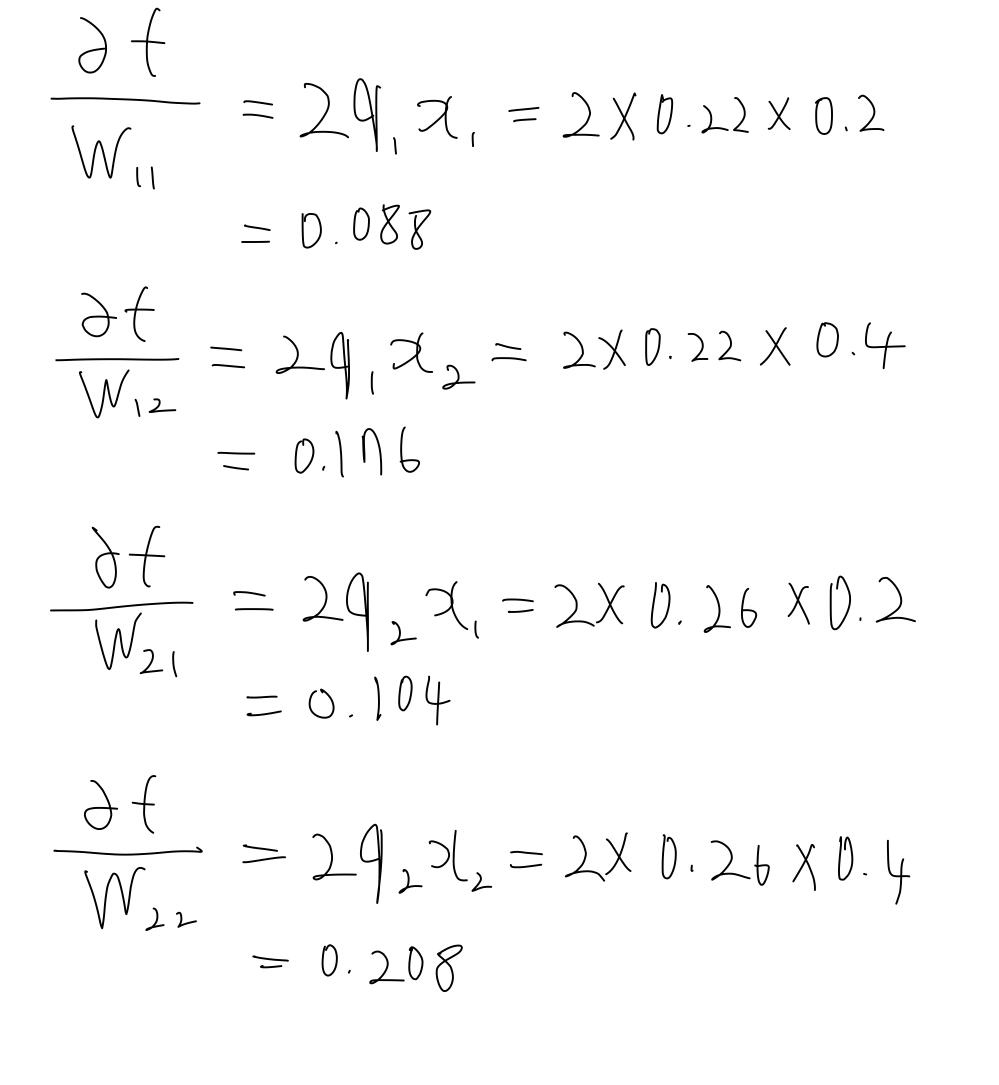 ∂f/W₁₁ = 2q₁x₁ = 2×0.22×0.2
= 0.088
∂f/W₁₂ = 2q₁x₂ = 2×0.22×0.4
= 0.176
∂f/W₂₁ = 2q₂x₁ = 2×0.26×0.2
= 0.104
∂f/W₂₂ = 2q₂x₂ = 2×0.26×0.4
= 0.208